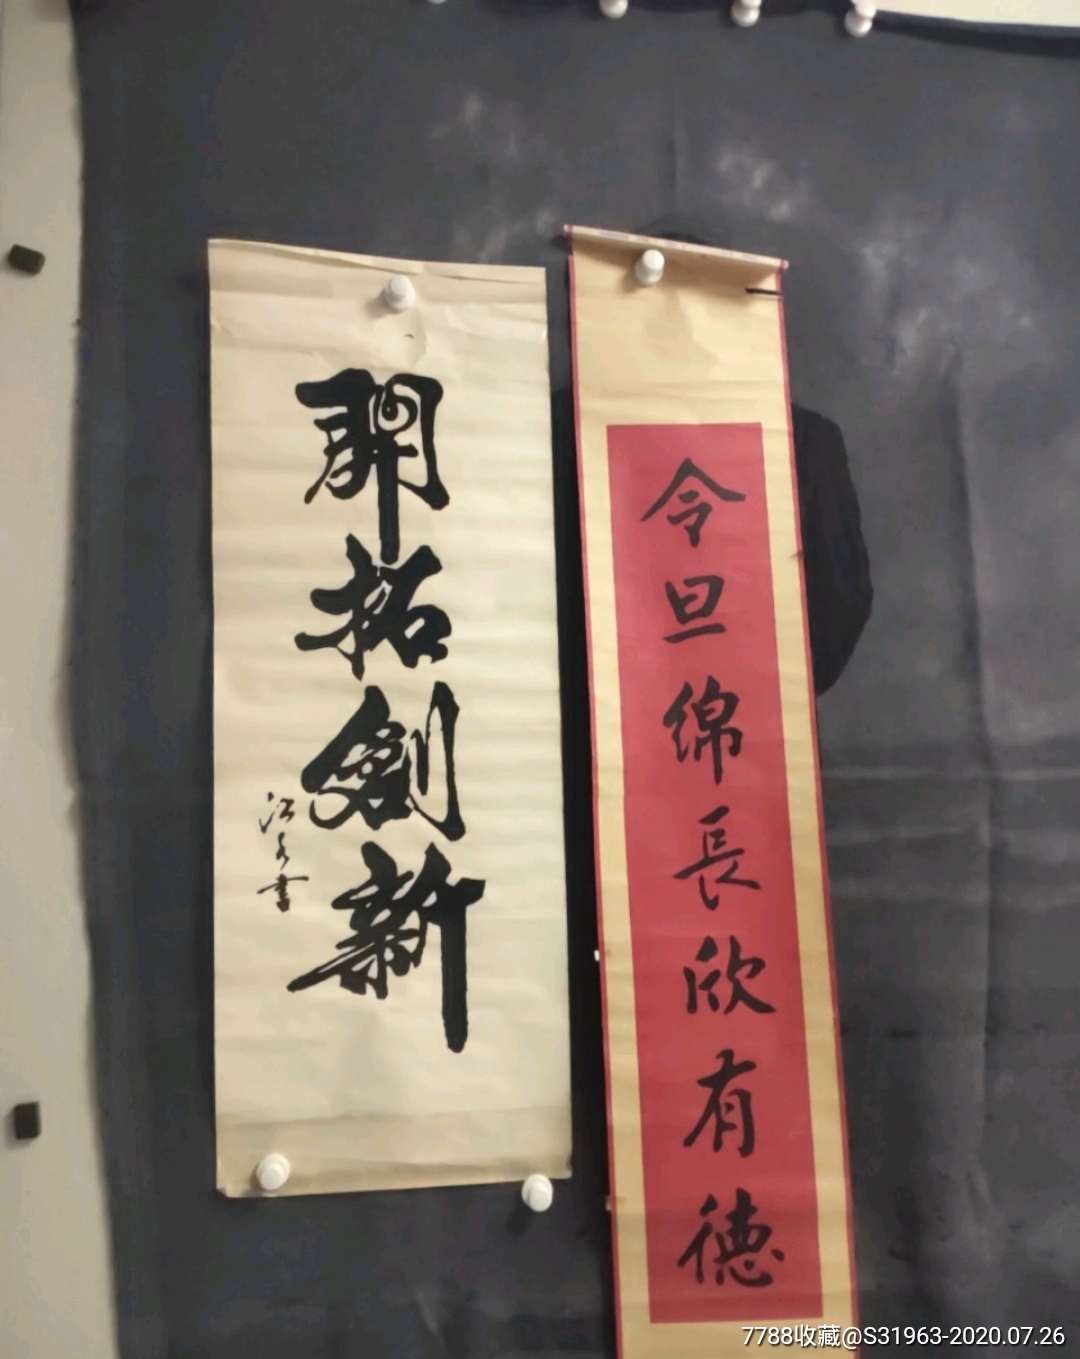 開拓創新
令旦綿長欣有德
7788收藏@S31963-2020.07.26